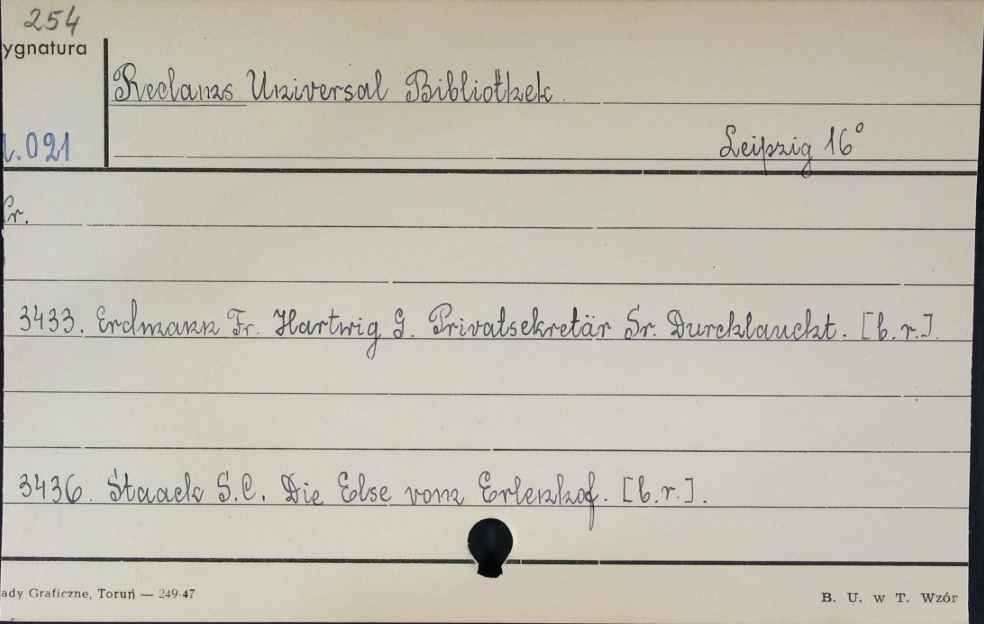 254
ygnatura
Reclams Universal Bibliothek
.021
Leipzig 16°
3433. Erdmann Fr. Hartwig G. Privatsekretär Sr. Durchlaucht. [b.r.].
3436. Staack S.C. Die Else vom Erlenhof. [b.r.].
ady Graficzne, Toruń — 249-47
B. U. w T. Wzór